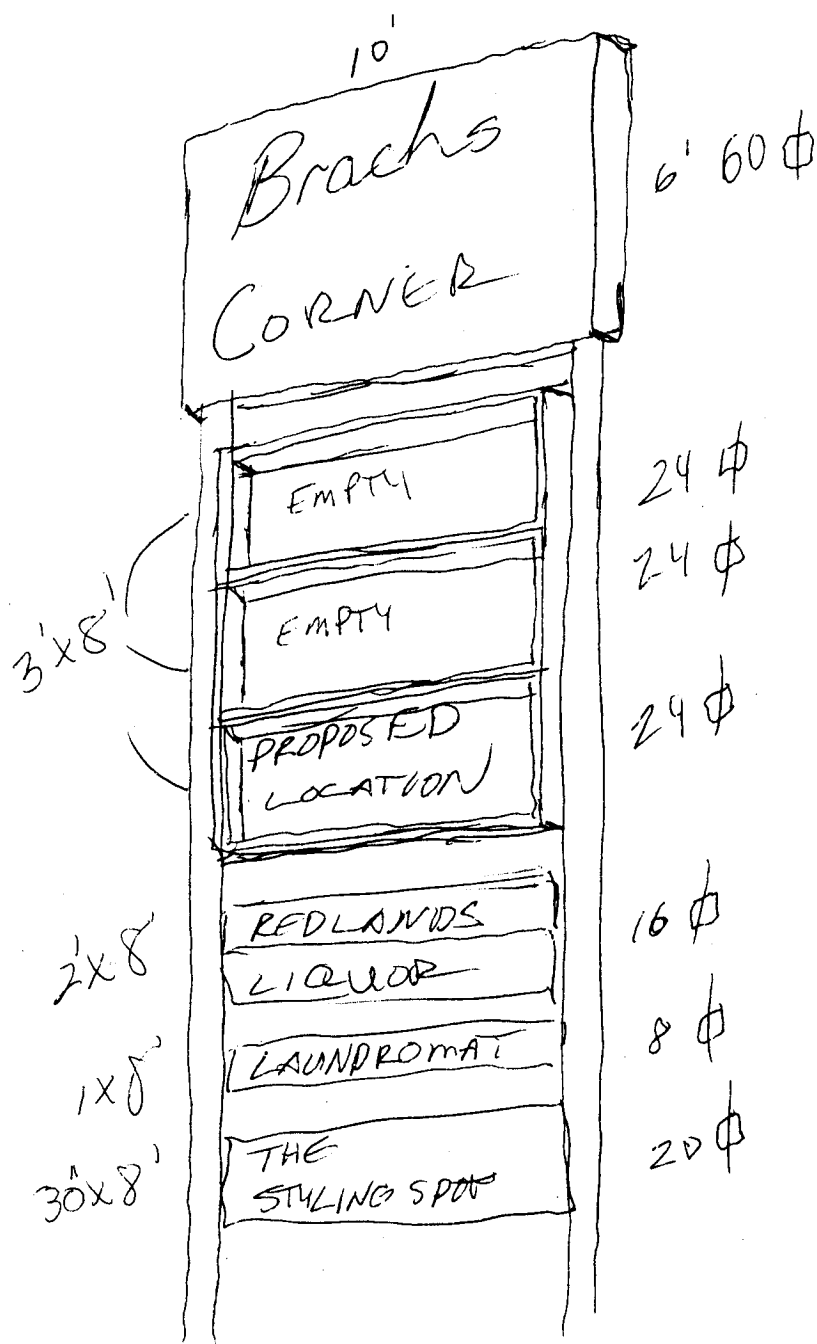 10'
Brachs
CORNER
6' 60 ⏀
EMPTY
24 ⏀
EMPTY
24 ⏀
3'x8'
PROPOSED
LOCATION
24 ⏀
REDLANDS
LIQUOR
2'x8'
16 ⏀
LAUNDROMAT
1x8'
8 ⏀
THE
STYLING SPOT
30"x8'
20 ⏀